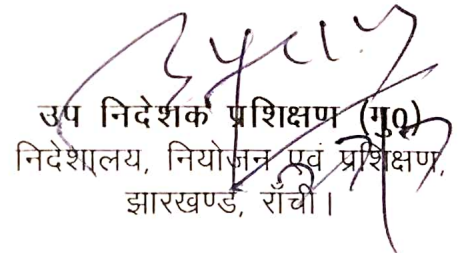 उप निदेशक प्रशिक्षण (मु०)
निदेशालय, नियोजन एवं प्रशिक्षण,
झारखण्ड, राँची।